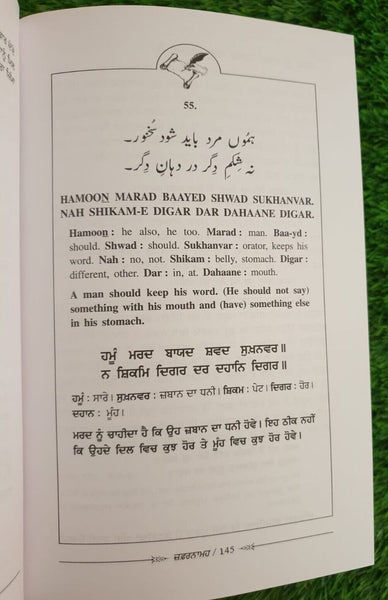 55.
ہموں مرد باید شود سخنور۔
نہ شِکمِ دِگر در دہانِ دِگر۔
HAMOON MARAD BAAYED SHWAD SUKHANVAR.
NAH SHIKAM-E DIGAR DAR DAHAANE DIGAR.
Hamoon : he also, he too. Marad : man. Baa-yd :
should. Shwad : should. Sukhanvar : orator, keeps his
word. Nah : no, not. Shikam : belly, stomach. Digar :
different, other. Dar : in, at. Dahaane : mouth.
A man should keep his word. (He should not say)
something with his mouth and (have) something else
in his stomach.
ਹਮੂੰ ਮਰਦ ਬਾਯਦ ਸ਼ਵਦ ਸੁਖ਼ਨਵਰ॥
ਨ ਸ਼ਿਕਮਿ ਦਿਗਰ ਦਰ ਦਹਾਨਿ ਦਿਗਰ॥
ਹਮੂੰ : ਸਾਰੇ। ਸੁਖ਼ਨਵਰ : ਜ਼ਬਾਨ ਦਾ ਧਨੀ। ਸ਼ਿਕਮ : ਪੇਟ। ਦਿਗਰ : ਹੋਰ।
ਦਹਾਨ : ਮੂੰਹ।
ਮਰਦ ਨੂੰ ਚਾਹੀਦਾ ਹੈ ਕਿ ਉਹ ਜ਼ਬਾਨ ਦਾ ਧਨੀ ਹੋਵੇ। ਇਹ ਠੀਕ ਨਹੀਂ
ਕਿ ਉਹਦੇ ਦਿਲ ਵਿਚ ਕੁਝ ਹੋਰ ਤੇ ਮੂੰਹ ਵਿਚ ਕੁਝ ਹੋਰ ਹੋਵੇ।
ਜ਼ਫ਼ਰਨਾਮਹ / 145